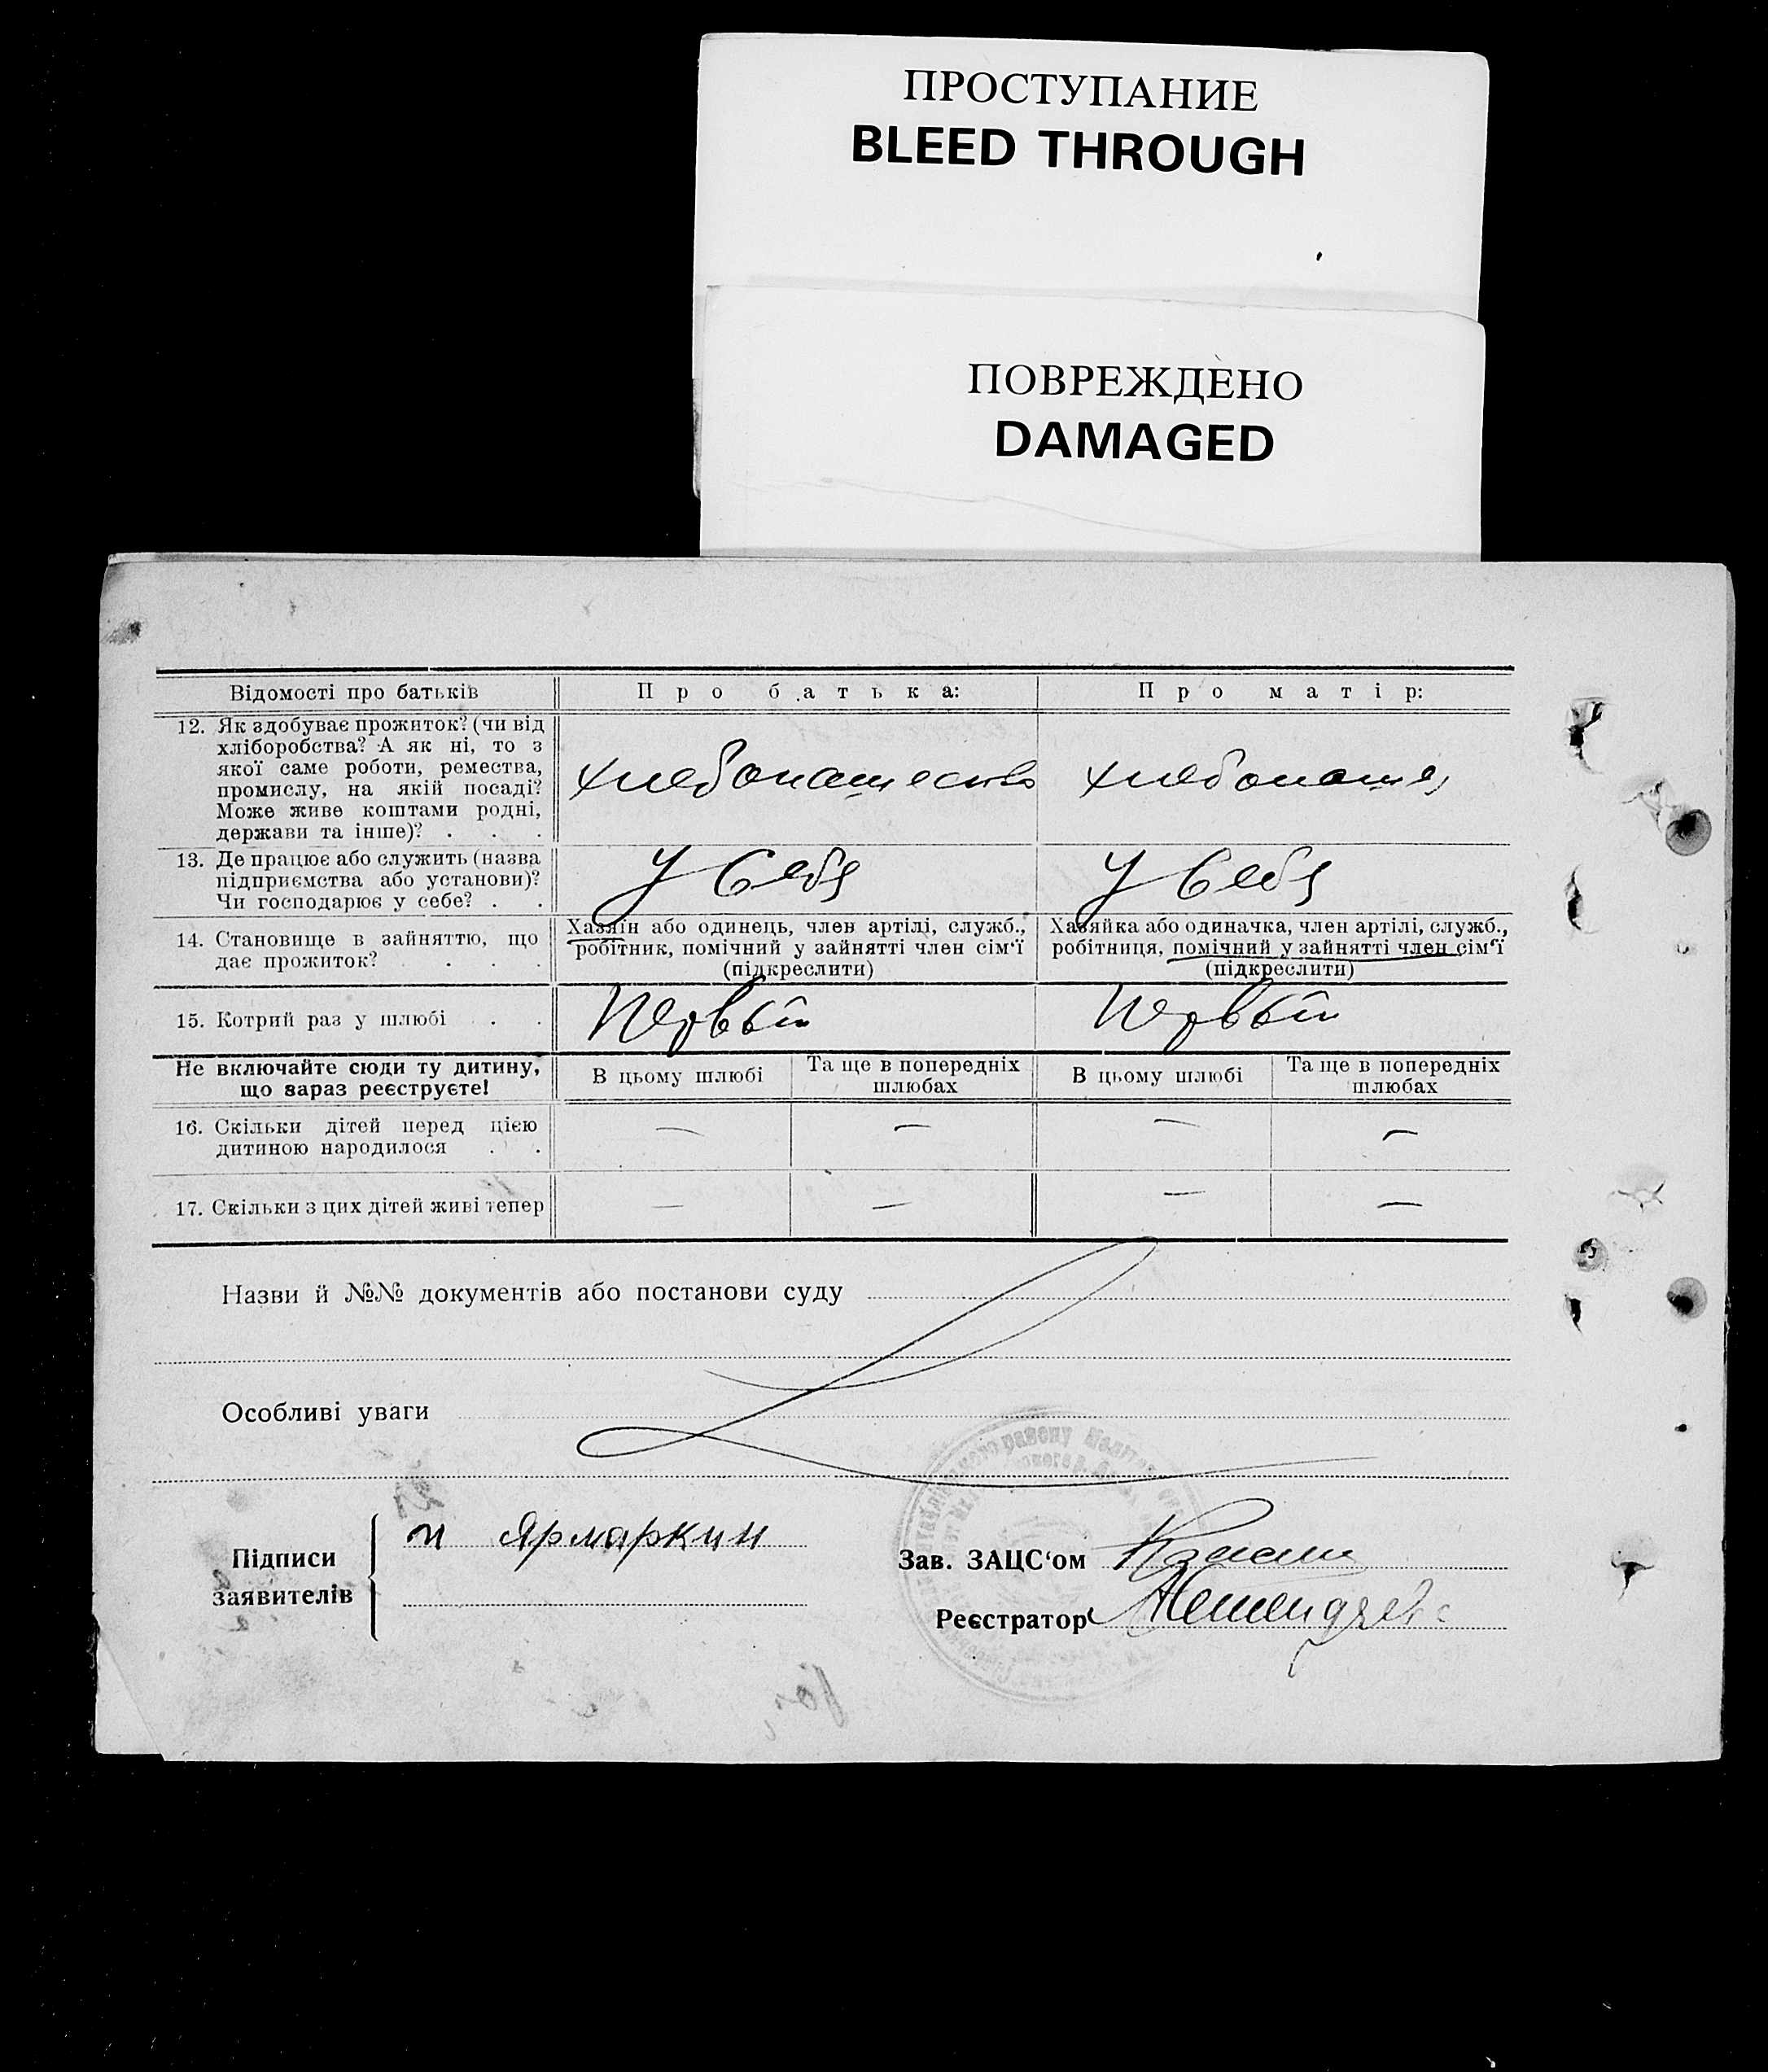 ПРОСТУПАНИЕ
BLEED THROUGH
ПОВРЕЖДЕНО
DAMAGED
Відомості про батьків
Про батька:
Про матір:
12. Як здобуває прожиток? (чи від
хліборобства? А як ні, то з
якої саме роботи, ремества,
промислу, на якій посаді?
Може живе коштами родні,
держави та інше)? . . .
хлебопашество
хлебопаше
13. Де працює або служить (назва
підприємства або установи)?
Чи господарює у себе? . .
У Себя
У Себя
14. Становище в зайняттю, що
дає прожиток? . . .
Хазяїн або одинець, член артілі, служб.,
робітник, помічний у зайнятті член сім'ї
(підкреслити)
Хазяйка або одиначка, член артілі, служб.,
робітниця, помічний у зайнятті член сім'ї
(підкреслити)
15. Котрий раз у шлюбі . .
Первый
Первый
Не включайте сюди ту дитину,
що зараз реєструєте!
В цьому шлюбі
Та ще в попередніх
шлюбах
В цьому шлюбі
Та ще в попередніх
шлюбах
16. Скільки дітей перед цією
дитиною народилося . .
— — — —
17. Скільки з цих дітей живі тепер
— — — —
Назви й №№ документів або постанови суду
Особливі уваги
Підписи
заявителів
и Ярмаркин
Зав. ЗАЦС'ом
Реєстратор